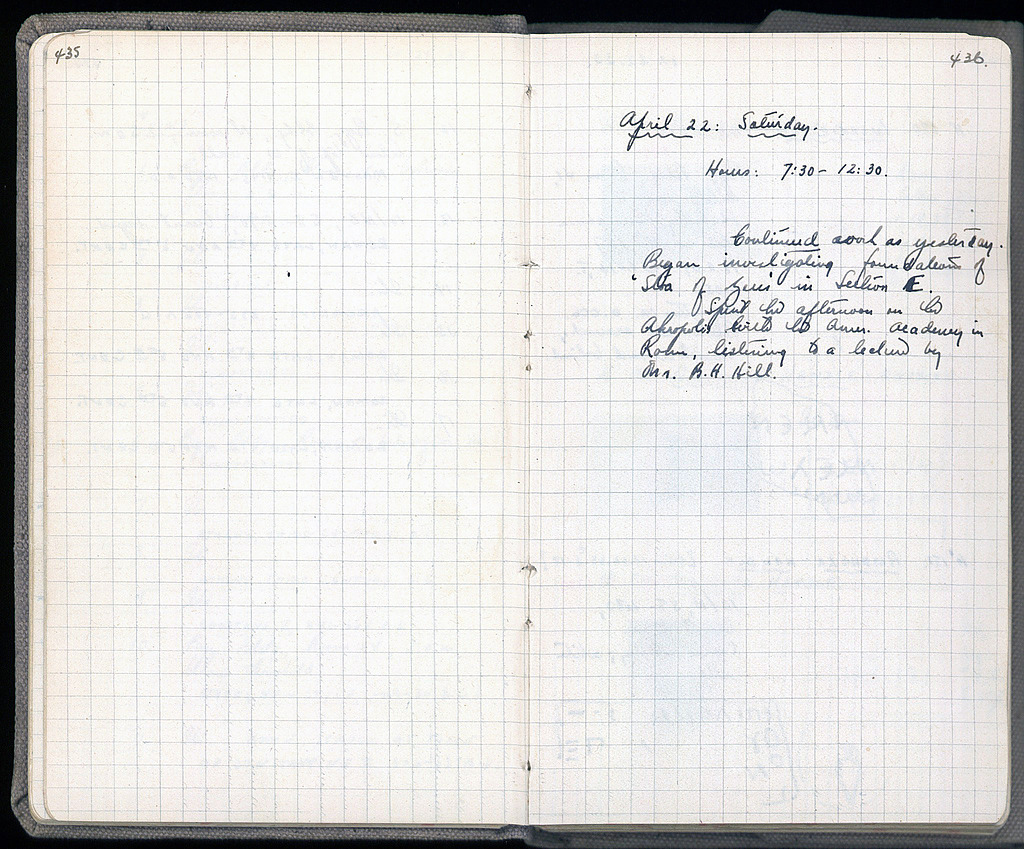 435
436.
April 22: Saturday.
Hours: 7:30 - 12:30.
Continued work as yesterday.
Began investigating foundations of
'Stoa of Zeus' in Section E.
Spent the afternoon on the
Akropolis with the Amer. Academy in
Rome, listening to a lecture by
Mr. B.H. Hill.